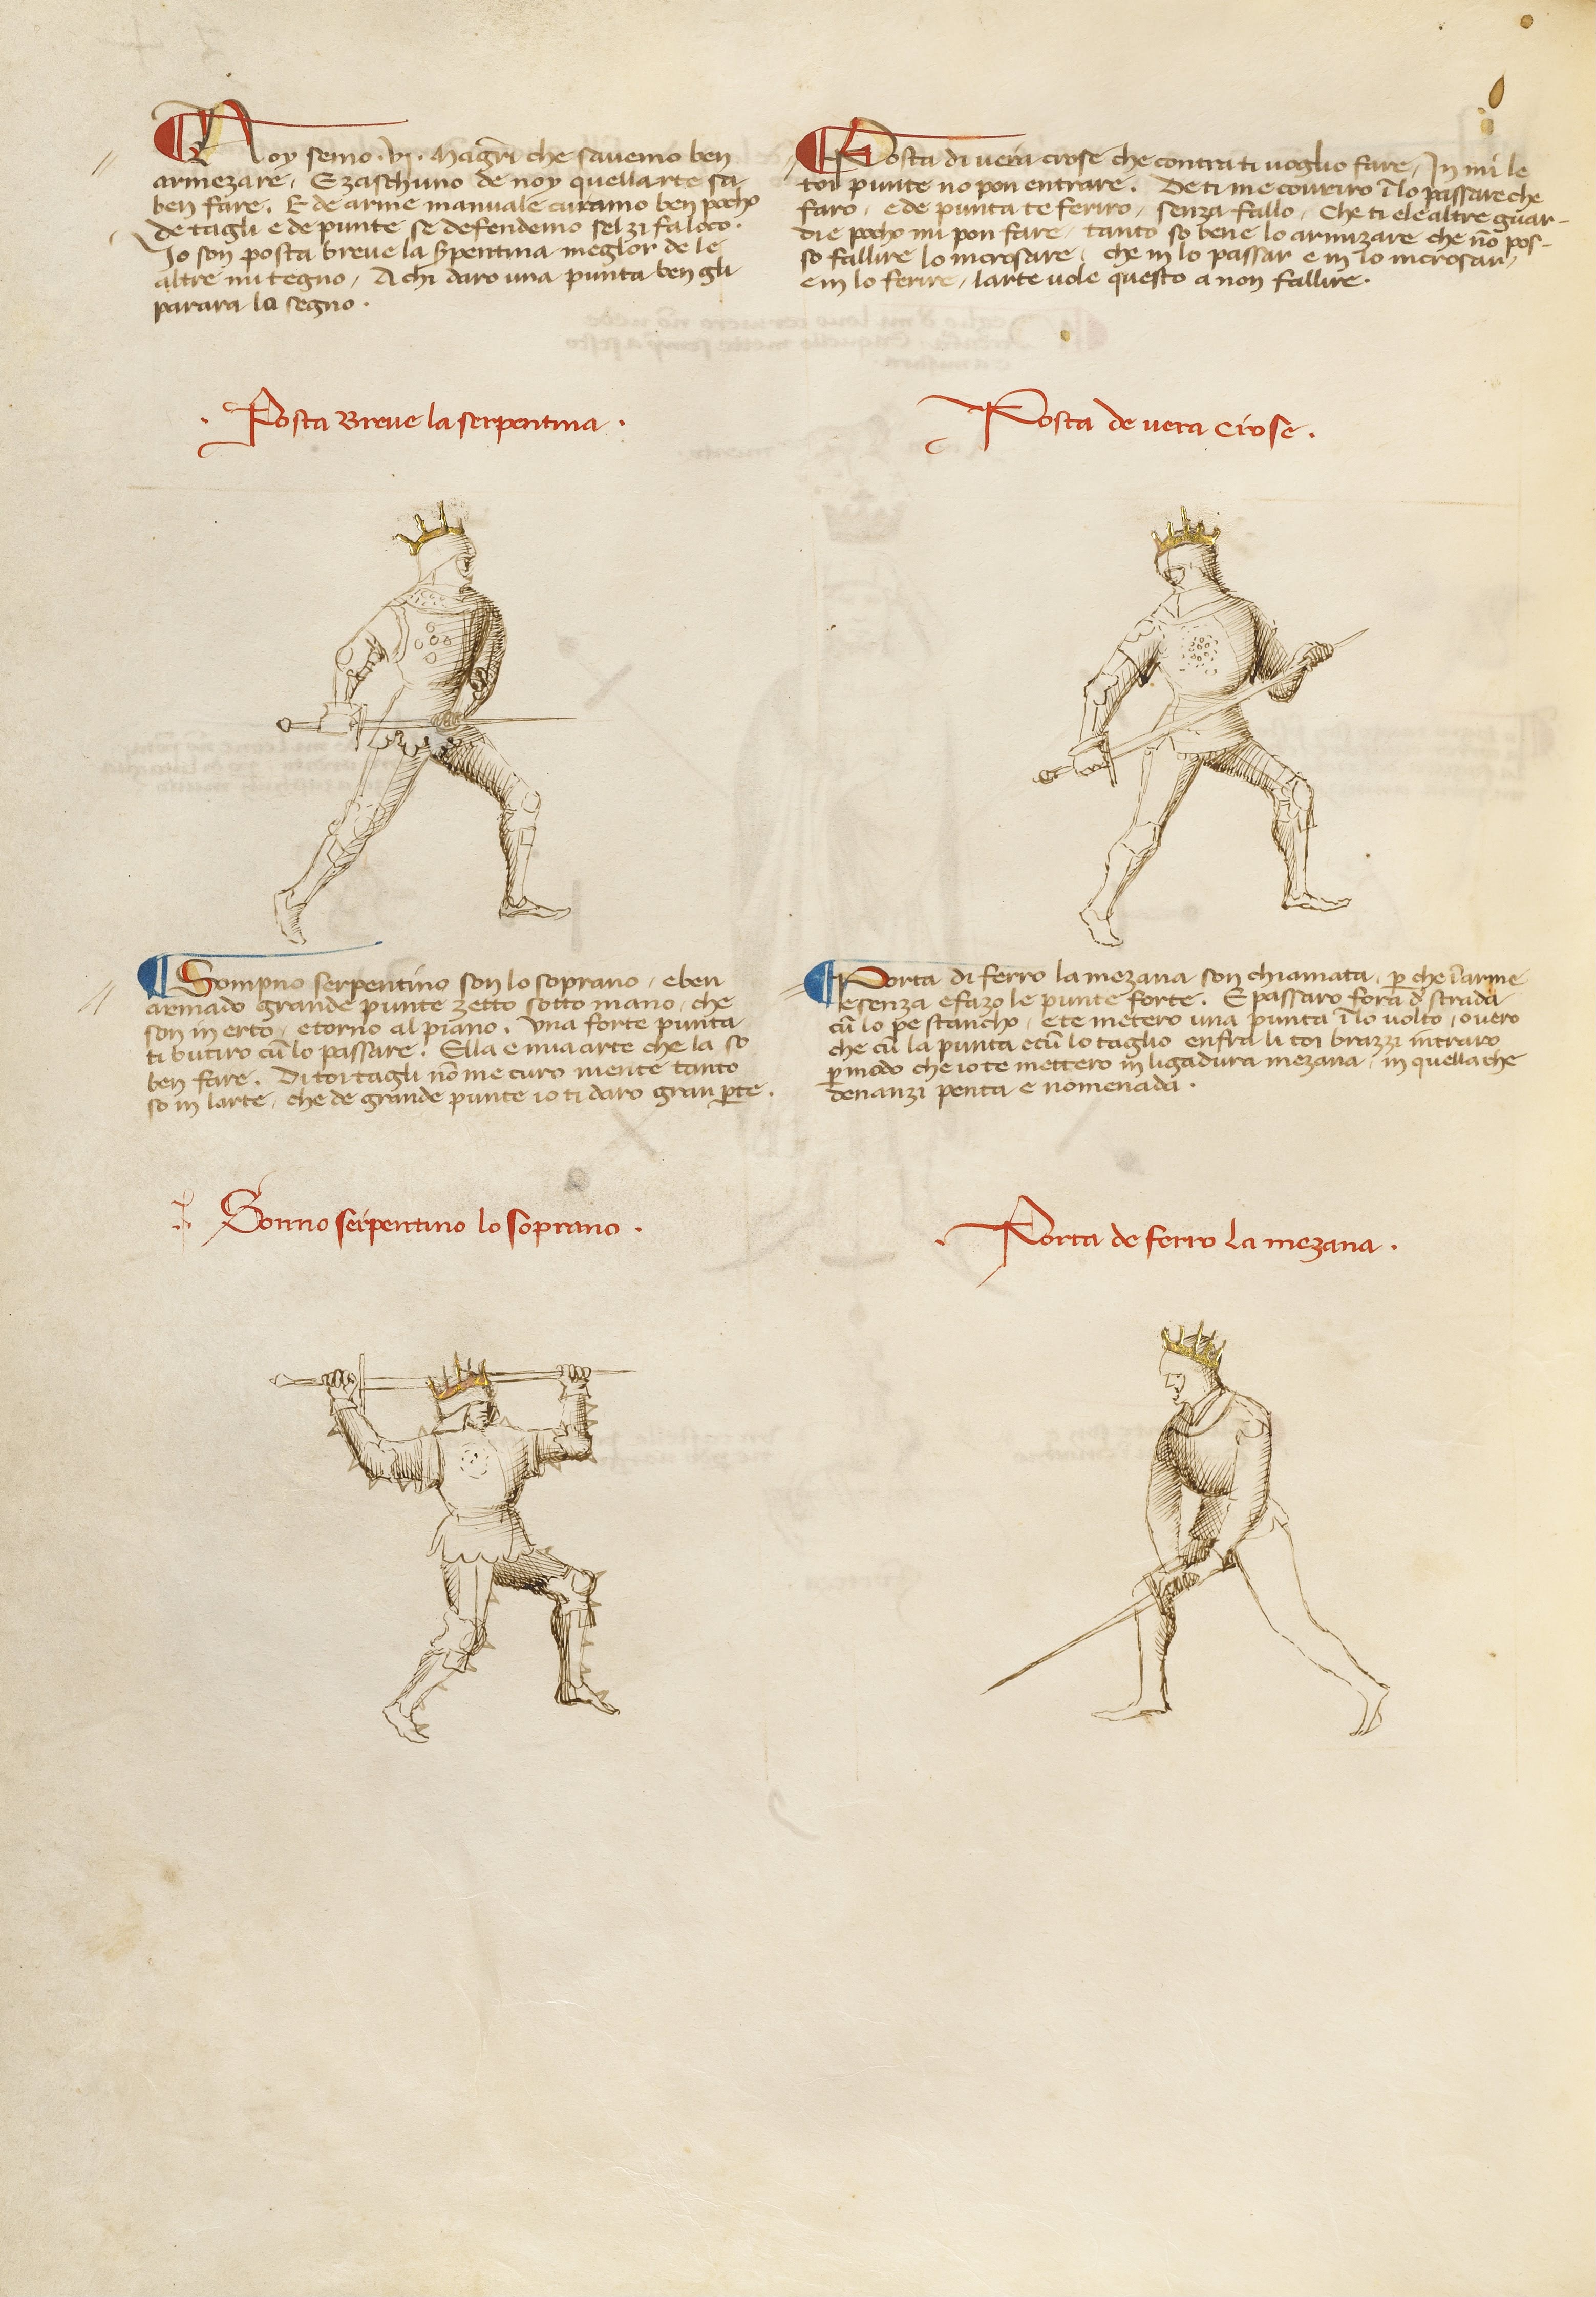 Noy semo .vj. Magri che savemo ben
armezare, E zaschuno de noy quellarte sa
ben fare. E de arme manuale curamo ben pocho
de tagli e de punte se defendemo sel zi fa loco.
Io son posta breve la spentina meglor de le
altre mi tegno, A chi daro una punta ben gli
parara lo segno.
Posta Breve la serpentina.
Posta di vera crose che contra ti voglio fare, In mi le
toi punte no pon entrare. De ti me covriro i lo passare che
faro, e de punta te feriro, senza fallo, Che ti e le altre guar-
die pocho mi pon fare, tanto so bene lo armizare che no pos-
so fallire lo incrosare, che in lo passar e in lo incrosar,
e in lo ferire, larte vole questo a non fallire.
Posta de vera crose.
Sompno serpentino son lo soprano, e ben
armado grande punte zetto sotto mano, che
son in erto, e torno al piano. Una forte punta
ti butiro cu lo passare. Ella e mia arte che la so
ben fare. Di toi tagli no me curo niente tanto
so in larte, che de grande punte io ti daro gran pte.
Sonno serpentino lo soprano.
Porta di ferro la mezana son chiamata, p che larme
e senza e fazo le punte forte. E passaro fora d strada
cu lo pe stancho, e te metero una punta i lo volto, overo
che cu la punta e cu lo taglio enfra li toi brazzi intraro
p modo che io te mettero in ligadura mezana, in quella che
denanzi penta e nomenada.
Porta de ferro la mezana.